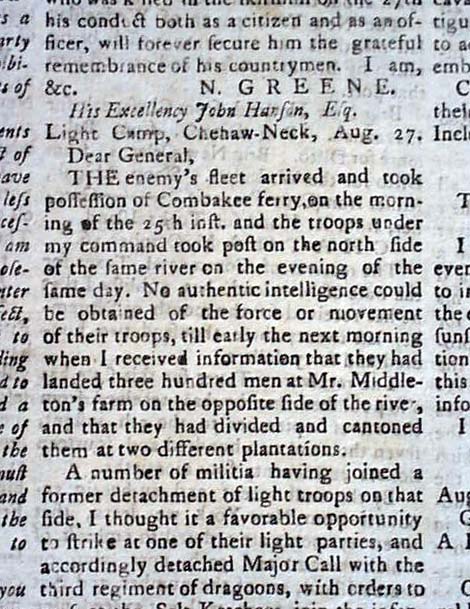 s a
arty
bi-
s of
ents
of
have
leſs
ceſ-
am
oſe-
nter
to
ding
d to
d a
e of
the
muſt
and
the
to
you
his conduct both as a citizen and as an of-
ficer, will forever ſecure him the grateful
remembrance of his countrymen. I am,
&c. N. GREENE.
His Excellency John Hanſon, Eſq.
Light Camp, Chehaw-Neck, Aug. 27.
Dear General,
THE enemy's fleet arrived and took
poſſeſſion of Combakee ferry, on the morn-
ing of the 25th inſt. and the troops under
my command took poſt on the north ſide
of the ſame river on the evening of the
ſame day. No authentic intelligence could
be obtained of the force or movement
of their troops, till early the next morning
when I received information that they had
landed three hundred men at Mr. Middle-
ton's farm on the oppoſite ſide of the river,
and that they had divided and cantoned
them at two different plantations.
A number of militia having joined a
former detachment of light troops on that
ſide, I thought it a favorable opportunity
to ſtrike at one of their light parties, and
accordingly detached Major Call with the
third regiment of dragoons, with orders to
tigu
to a
emb
C
thei
Incl
T
I
even
to in
the e
tion
this
info
I
Aug
G
A